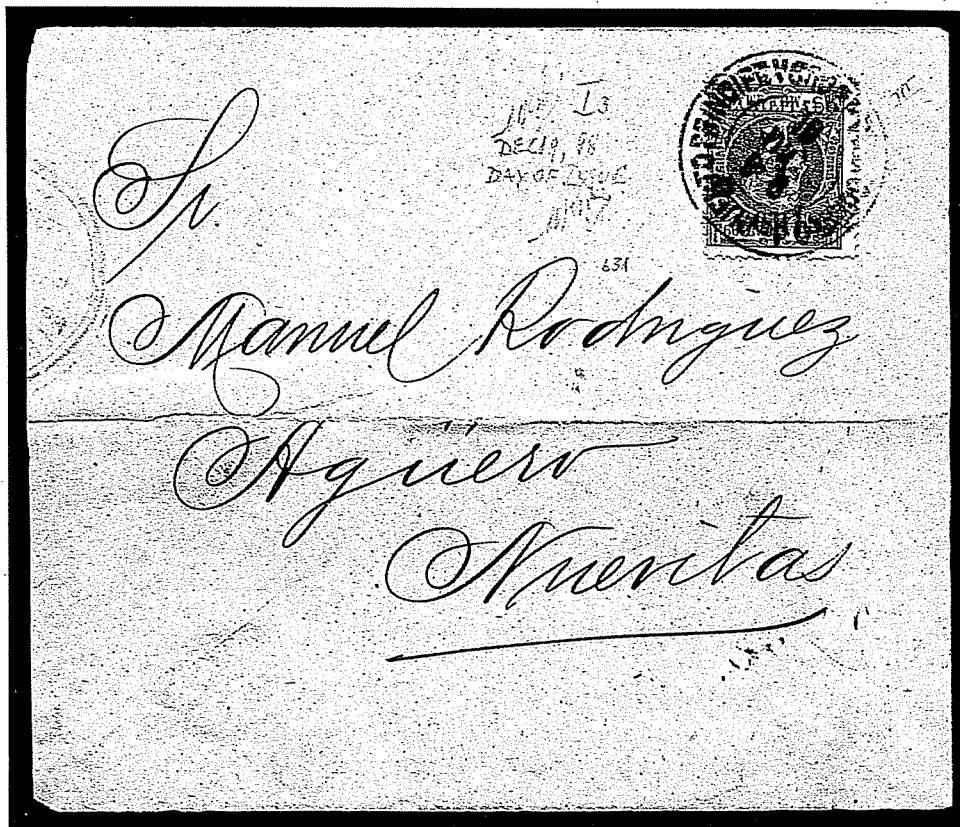 I3
DEC 19, 98
DAY OF ISSUE
631
Sr.
Manuel Rodriguez
Agüero
Nuevitas